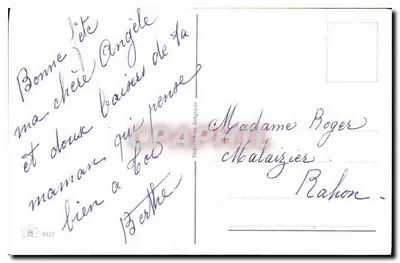 Bonne fête
ma chère Angèle
et doux baisers de ta
maman qui pense
bien a toi
Berthe
Madame Roger
Malaizier
Rahon.